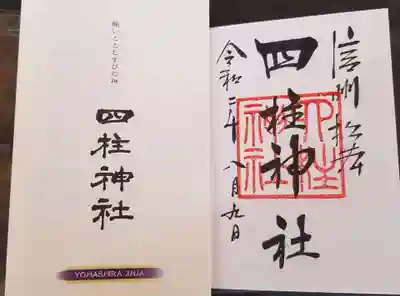 願いごとむすびの神
四柱神社
YOHASHIRA JINJA
信州松本
四柱神社
令和二年八月九日
四柱神社